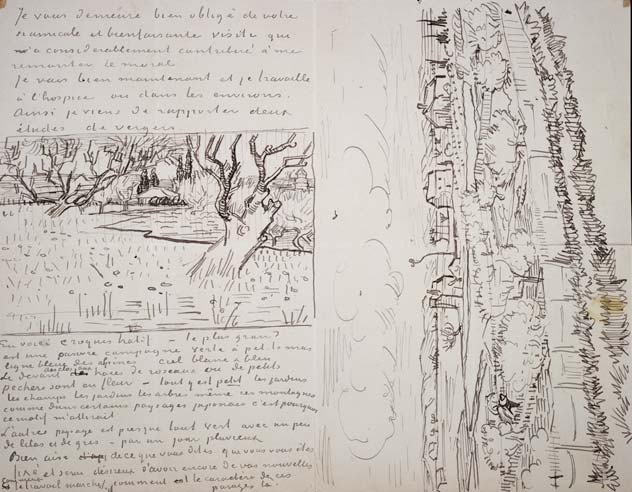 Je vous demeure bien obligé de votre
si amicale et bienfaisante visite qui
m'a considérablement contribué à me
remonter le moral
Je vais bien maintenant et je travaille
à l'hospice ou dans les environs.
Ainsi je viens de rapporter deux
études de vergers
En voici croquis hatif – le plus grand
est une pauvre campagne verte à petits mas
ligne bleue des alpines ciel blanc et bleu
Le devant des clos aux haies de roseaux où de petits
pechers sont en fleur – tout y est petit les jardins
les champs les jardins les arbres même ces montagnes
comme dans certains paysages japonais c'est pourquoi
ce motif m'attirait
L'autre paysage est presque tout vert avec un peu
de lilas et de gris – par un jour pluvieux
Bien aise de ce que vous dites que vous vous êtes
fixé et serai désireux d'avoir encore de vos nouvelles
comment le travail marche, comment est le caractère de ces
parages là.